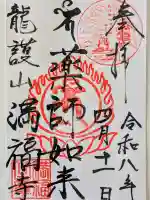 奉拝
令和八年
四月十一日
薬師如来
龍護山
満福寺